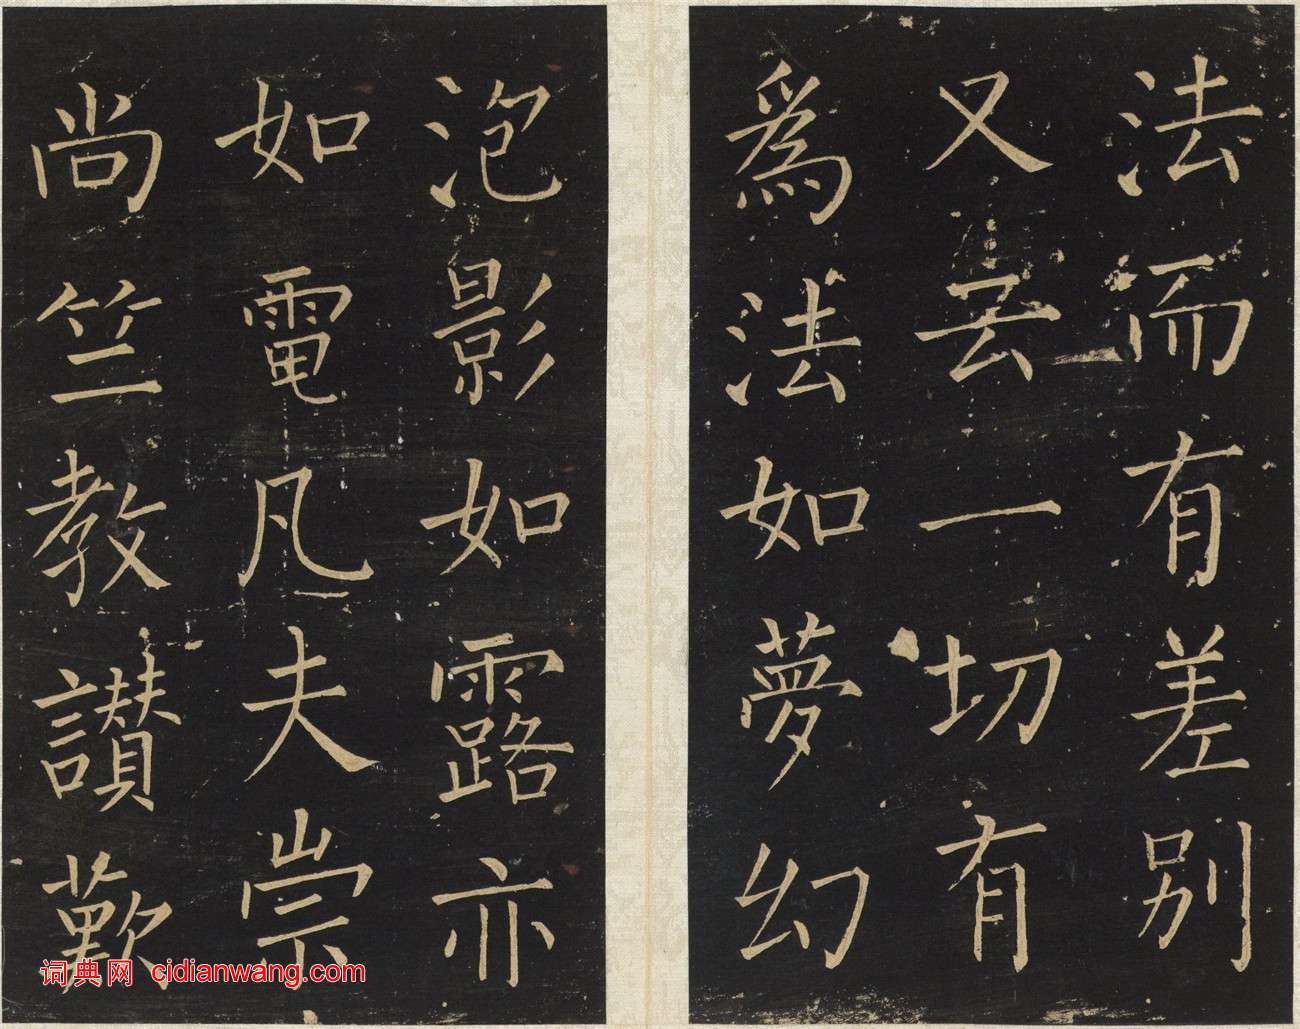 法而有差別
又云一切有
為法如夢幻
泡影如露亦
如電凡夫崇
尚竺教讃歎
词典网 cidianwang.com